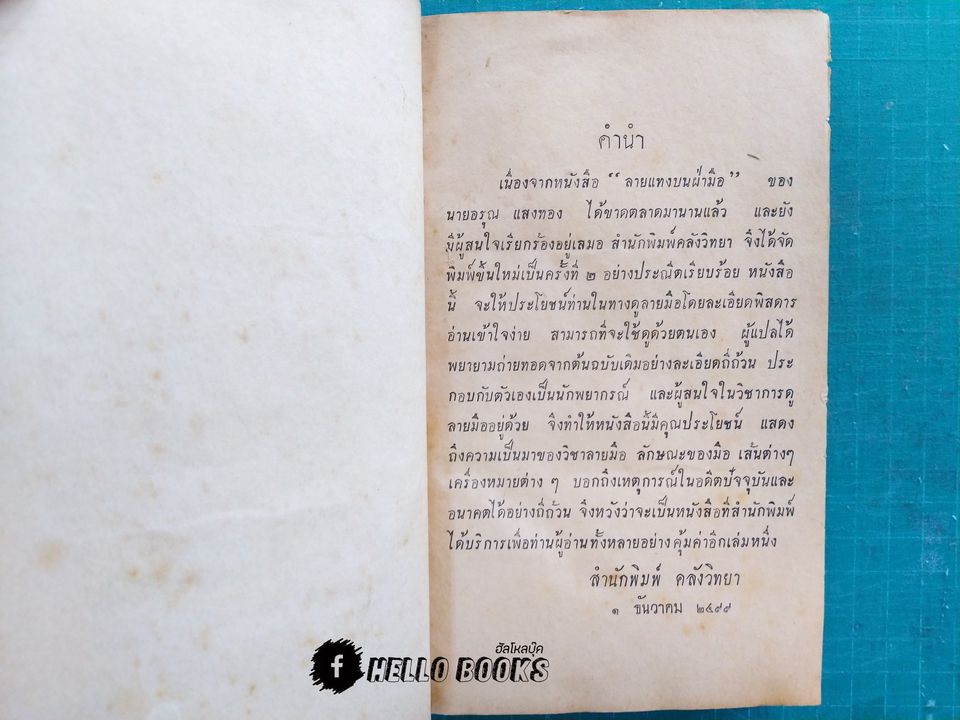 คำนำ
เนื่องจากหนังสือ “ ลายแทงบนฝ่ามือ ” ของ
นายอรุณ แสงทอง ได้ขาดตลาดมานานแล้ว และยัง
มีผู้สนใจเรียกร้องอยู่เสมอ สำนักพิมพ์คลังวิทยา จึงได้จัด
พิมพ์ขึ้นใหม่เป็นครั้งที่ ๒ อย่างประณีตเรียบร้อย หนังสือ
นี้ จะให้ประโยชน์ท่านในทางดูลายมือโดยละเอียดพิสดาร
อ่านเข้าใจง่าย สามารถที่จะใช้ดูด้วยตนเอง ผู้แปลได้
พยายามถ่ายทอดจากต้นฉบับเดิมอย่างละเอียดถี่ถ้วน ประ
กอบกับตัวเองเป็นนักพยากรณ์ และผู้สนใจในวิชาการดู
ลายมืออยู่ด้วย จึงทำให้หนังสือนี้มีคุณประโยชน์ แสดง
ถึงความเป็นมาของวิชาลายมือ ลักษณะของมือ เส้นต่างๆ
เครื่องหมายต่าง ๆ บอกถึงเหตุการณ์ในอดีตปัจจุบันและ
อนาคตได้อย่างถี่ถ้วน จึงหวังว่าจะเป็นหนังสือที่สำนักพิมพ์
ได้บริการเพื่อท่านผู้อ่านทั้งหลายอย่างคุ้มค่าอีกเล่มหนึ่ง
สำนักพิมพ์ คลังวิทยา
๑ ธันวาคม ๒๔๙๙
ฮัลโหลบุ๊ค
f HELLO BOOKS